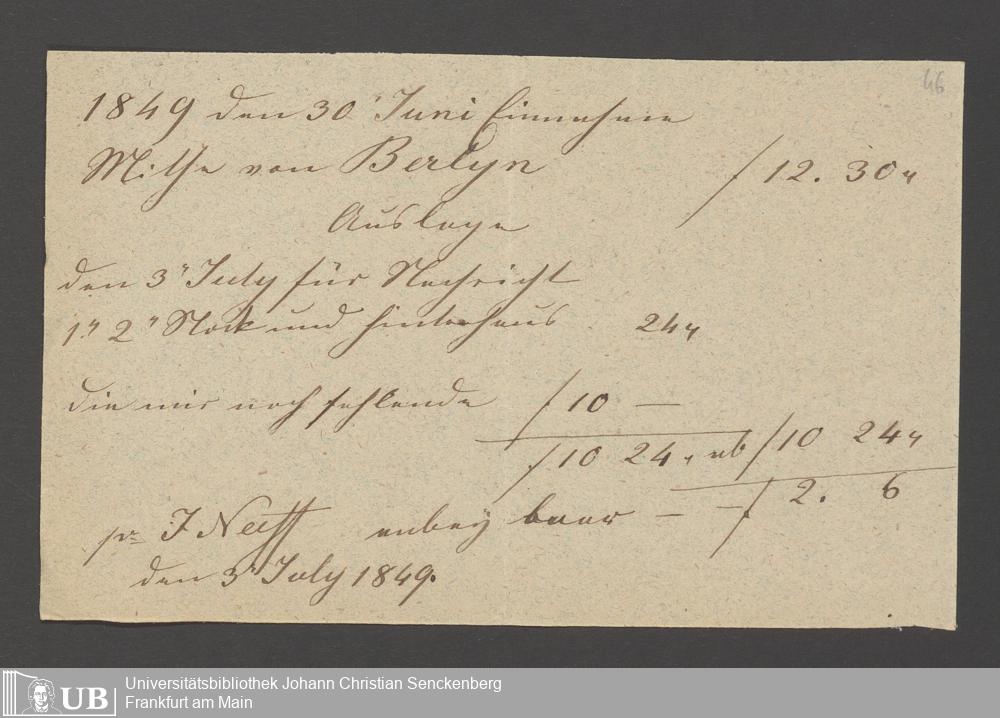 46
1849 den 30 Juni Einnahme
Mithe von Berlyn f 12. 30 "
Auslage
den 3" July für Nachricht
1" 2" Stock und Hinterhaus 24 "
die mir noch fehlende f 10 —
f 10 24 " ab f 10 24 "
pr J Neff anbey baar — — f 2. 6
den 3" July 1849.
UB Universitätsbibliothek Johann Christian Senckenberg
Frankfurt am Main